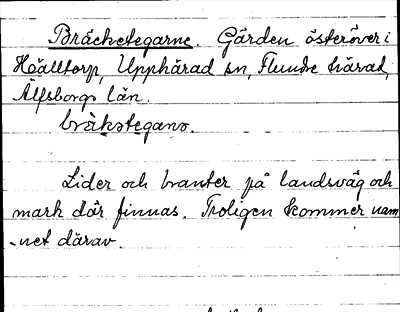 Bräcketegarne. Gården österöver i
Hjälltorp, Upphärad sn, Flundre härad,
Älfsborgs län.
bräkstegano.
Lider och branter på landsväg och
mark där finnas. Troligen kommer nam-
-net därav.